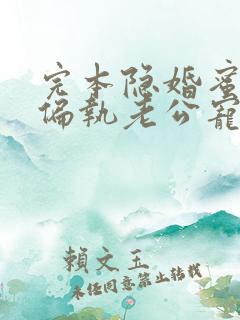 完本隐婚蜜
偏執老公寵
賴文玉
未经同意禁止转载